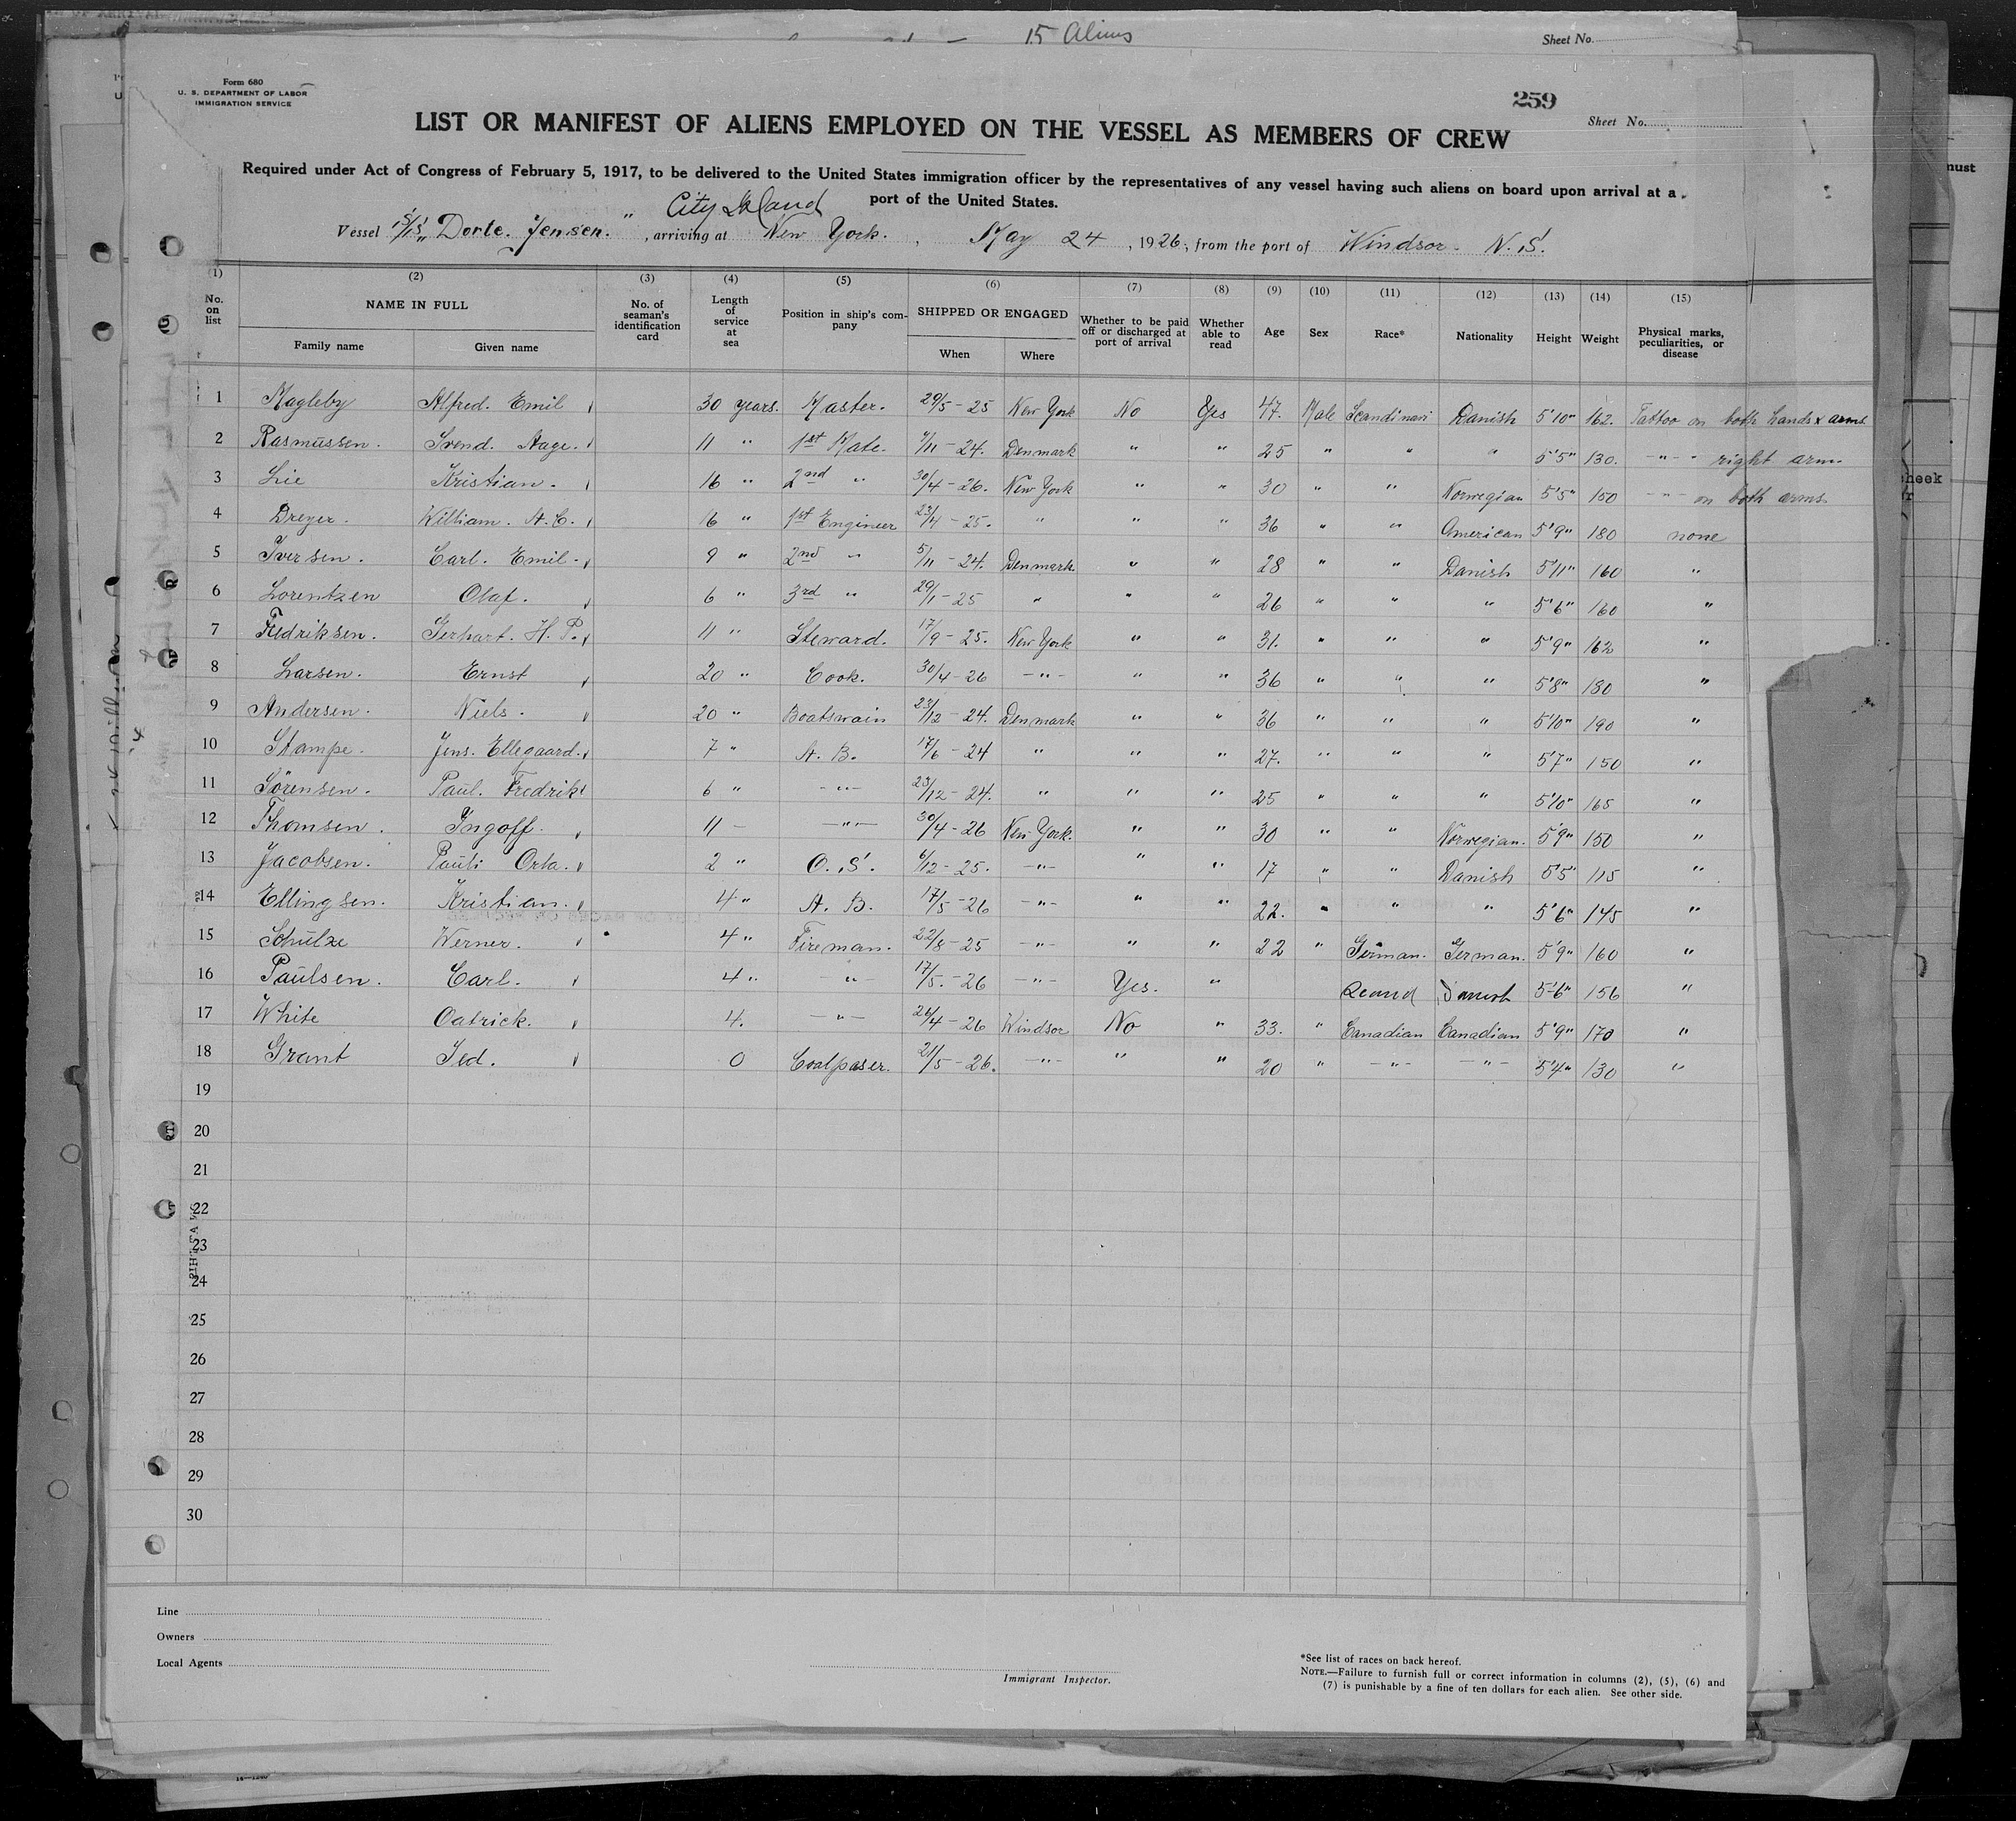 15 Aliens
Sheet No.
Form 680
U. S. DEPARTMENT OF LABOR
IMMIGRATION SERVICE
259
Sheet No.
LIST OR MANIFEST OF ALIENS EMPLOYED ON THE VESSEL AS MEMBERS OF CREW
Required under Act of Congress of February 5, 1917, to be delivered to the United States immigration officer by the representatives of any vessel having such aliens on board upon arrival at a
port of the United States.
City Island
Vessel S/S "Dorte. Jensen.", arriving at New York., May 24, 1926, from the port of Windsor. N.S.
(1) (2) (3) (4) (5) (6) (7) (8) (9) (10) (11) (12) (13) (14) (15)
No. on list NAME IN FULL Family name Given name No. of seaman's identification card Length of service at sea Position in ship's company SHIPPED OR ENGAGED When Where Whether to be paid off or discharged at port of arrival Whether able to read Age Sex Race* Nationality Height Weight Physical marks, peculiarities, or disease
1 Magleby Alfred. Emil 30 years. Master. 29/5-25 New York No Yes 47. Male Scandinavi Danish 5'10" 162. Tattoo on both hands & arms
2 Rasmussen. Svend. Aage. 11 " 1st Mate. 5/11-24. Denmark " " 25 " " " 5'5" 130. -"- " right arm.
3 Lie Kristian. 16 " 2nd " 30/4-26. New York " " 30 " " Norwegian 5'5" 150 -"- on both arms
4 Dreyer. William. A.C. 16 " 1st Engineer 23/4-25. " " " 36 " " American 5'9" 180 none
5 Iversen. Carl. Emil. 9 " 2nd " 5/11-24. Denmark. " " 28 " " Danish 5'11" 160 "
6 Lorentzen Olaf. 6 " 3rd " 29/1-25 " " " 26 " " " 5'6" 160 "
7 Fredriksen. Gerhart. H. P. 11 " Steward. 17/9-25. New York " " 31. " " " 5'9" 162 "
8 Larsen. Ernst 20 " Cook. 30/4-26 -"- " " 36 " " " 5'8" 180 "
9 Andersen. Niels. 20 " Boatswain 23/12-24. Denmark " " 36 " " " 5'10" 190 "
10 Stampe. Jens. Ellegaard. 7 " A. B. 17/6-24 " " " 27. " " " 5'7" 150 "
11 Sörensen. Paul. Fredrik 6 " -"- 23/12-24. " " " 25 " " " 5'10" 165 "
12 Thomsen. Ingoff. 11 - -"- 30/4-26 New York. " " 30 " " Norwegian. 5'9" 150 "
13 Jacobsen. Pauli Orla. 2 " O. S. 6/12-25. -"- " " 17 " " Danish 5'5" 115 "
14 Ellingsen. Kristian. 4 " A. B. 17/5-26 -"- " " 22. " " " 5'6" 145 "
15 Schülze Werner. 4 " Fireman. 22/8-25 -"- " " 22 " German. German. 5'9" 160 "
16 Paulsen. Carl. 4 " -"- 17/5.-26 -"- Yes. " Scand Danish 5'6" 156 "
17 White Oatrick. 4. -"- 26/4-26 Windsor No " 33. " Canadian Canadian 5'9" 170 "
18 Grant Ted. 0 Coalpaser. 21/5-26. -"- " " 20 " -"- -"- 5'4" 130 "
19
20
21
22
23
24
25
26
27
28
29
30
Line
Owners
Local Agents
Immigrant Inspector.
*See list of races on back hereof.
NOTE.—Failure to furnish full or correct information in columns (2), (5), (6) and
(7) is punishable by a fine of ten dollars for each alien. See other side.